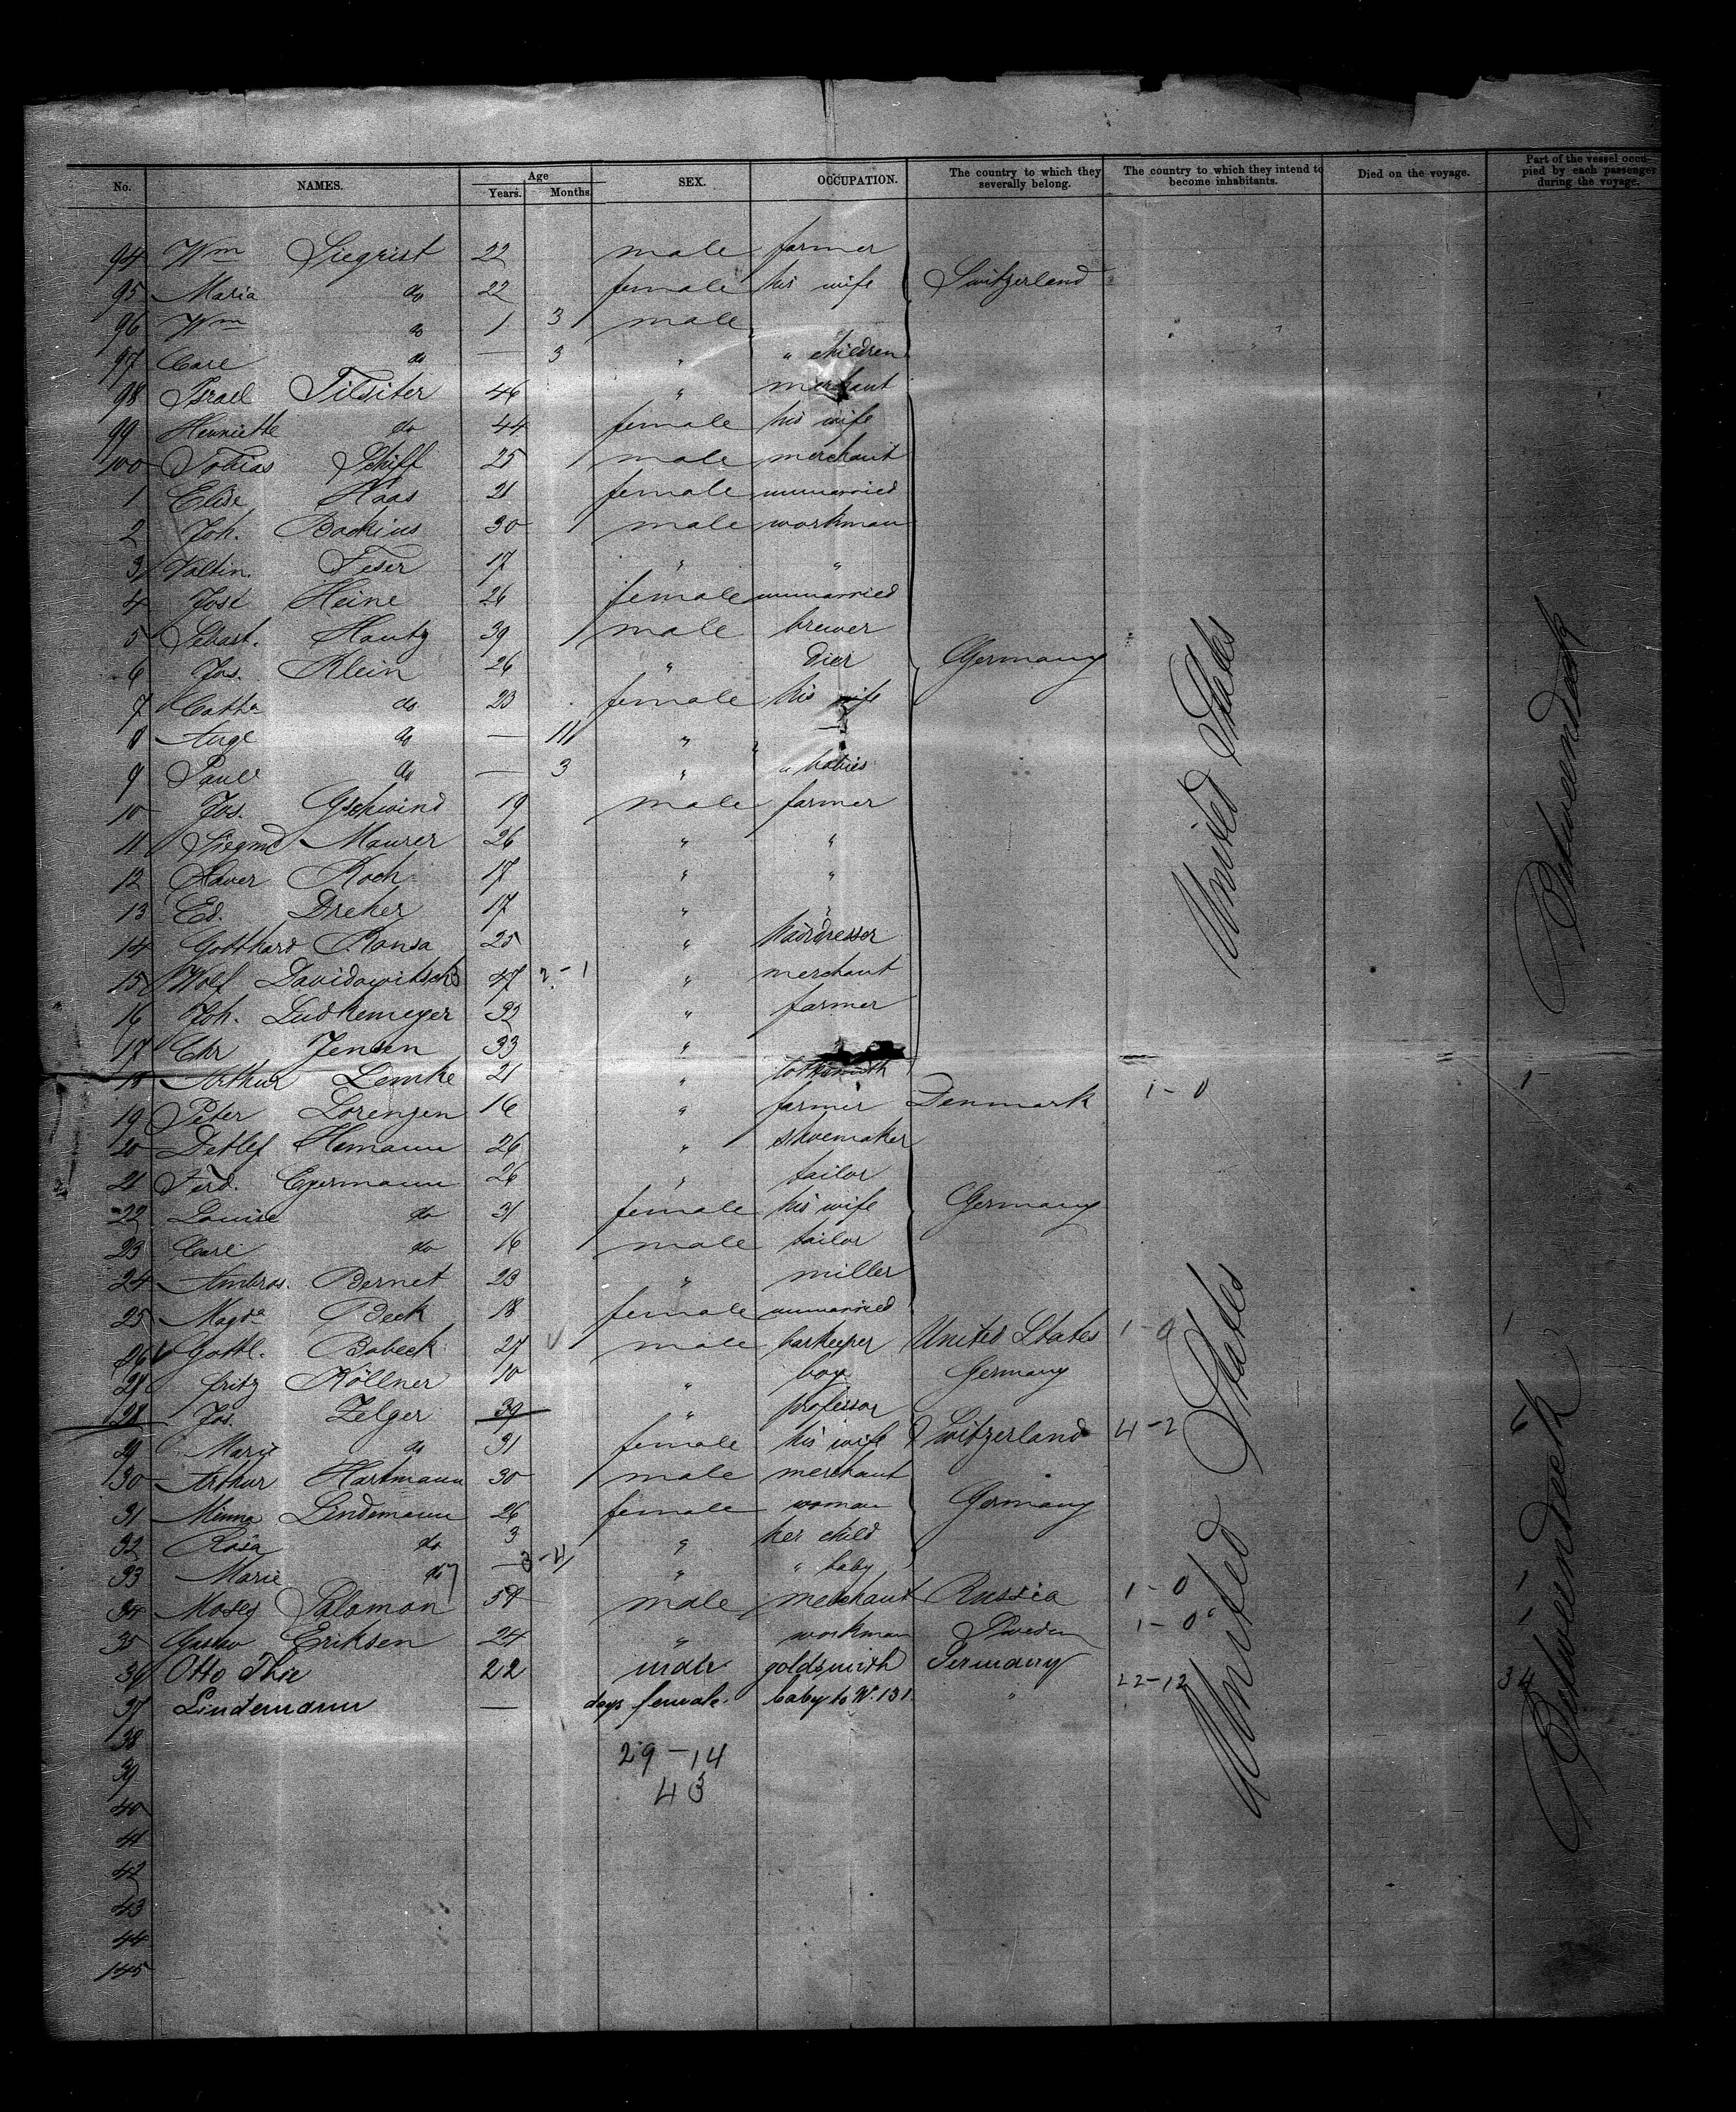 No. NAMES. Age Years. Months. SEX. OCCUPATION. The country to which they severally belong. The country to which they intend to become inhabitants. Died on the voyage. Part of the vessel occupied by each passenger during the voyage.
94 Wm Siegrist 22 male farmer
95 Maria do 22 female his wife Switzerland
96 Wm do 1 3 male
97 Carl do — 3 " " children
98 Israel Tilsiter 46 " merchant
99 Henriette do 44 female his wife
100 Tobias Schiff 25 male merchant
1 Elise Haas 21 female unmarried
2 Joh. Backius 30 male workman
3 Valtin. Feser 17 " "
4 Jose Heine 26 female unmarried
5 Sebast. Hautz 39 male brewer
6 Jos. Klein 26 " dier Germany
7 Catha do 23 female his wife
8 Auge do — 11 " —
9 Paul do — 3 " " babies
10 Jos. Gschwind 19 male farmer
11 Siegmd Maurer 26 " "
12 Xaver Koch 17 " "
13 Ed. Dreher 17 " "
14 Gotthard Ransa 25 " hairdresser
15 Wolf Davidowitsch 47 2-1 " merchant
16 Joh. Ludkemeyer 32 " farmer
17 Chr Jensen 33 "
18 Arthur Lemke 21 "
19 Peter Lorenzen 16 " farmer Denmark 1-0 1
20 Detlef Hamann 26 " shoemaker
21 Ferd. Egermann 26 " tailor
22 Louise do 31 female his wife Germany
23 Carl do 16 male tailor
24 Ambros. Bernet 23 " miller
25 Magda Beck 18 female unmarried
26 Gottl. Bobeck 27 male barkeeper United States 1-0 1
27 Fritz Köllner 10 " boy Germany
128 Jos. Zelger 39 " professor
29 Marie do 31 female his wife Switzerland 4-2 6
130 Arthur Hartmann 30 male merchant
31 Minna Lindemann 26 female woman Germany
32 Rosa do 3 " her child
33 Marie do — 3-4 " " baby
34 Moses Salomon 54 male merchant Russia 1-0 1
35 Gustav Eriksen 24 " workman Sweden 1-0 1
36 Otto Thie 22 male goldsmith Germany 22-12 34
37 Lindemann — days female. baby to No. 131. "
38
39
40
41
42
43
44
145
29-14
43
United States
Betweendeck
United States
Betweendeck